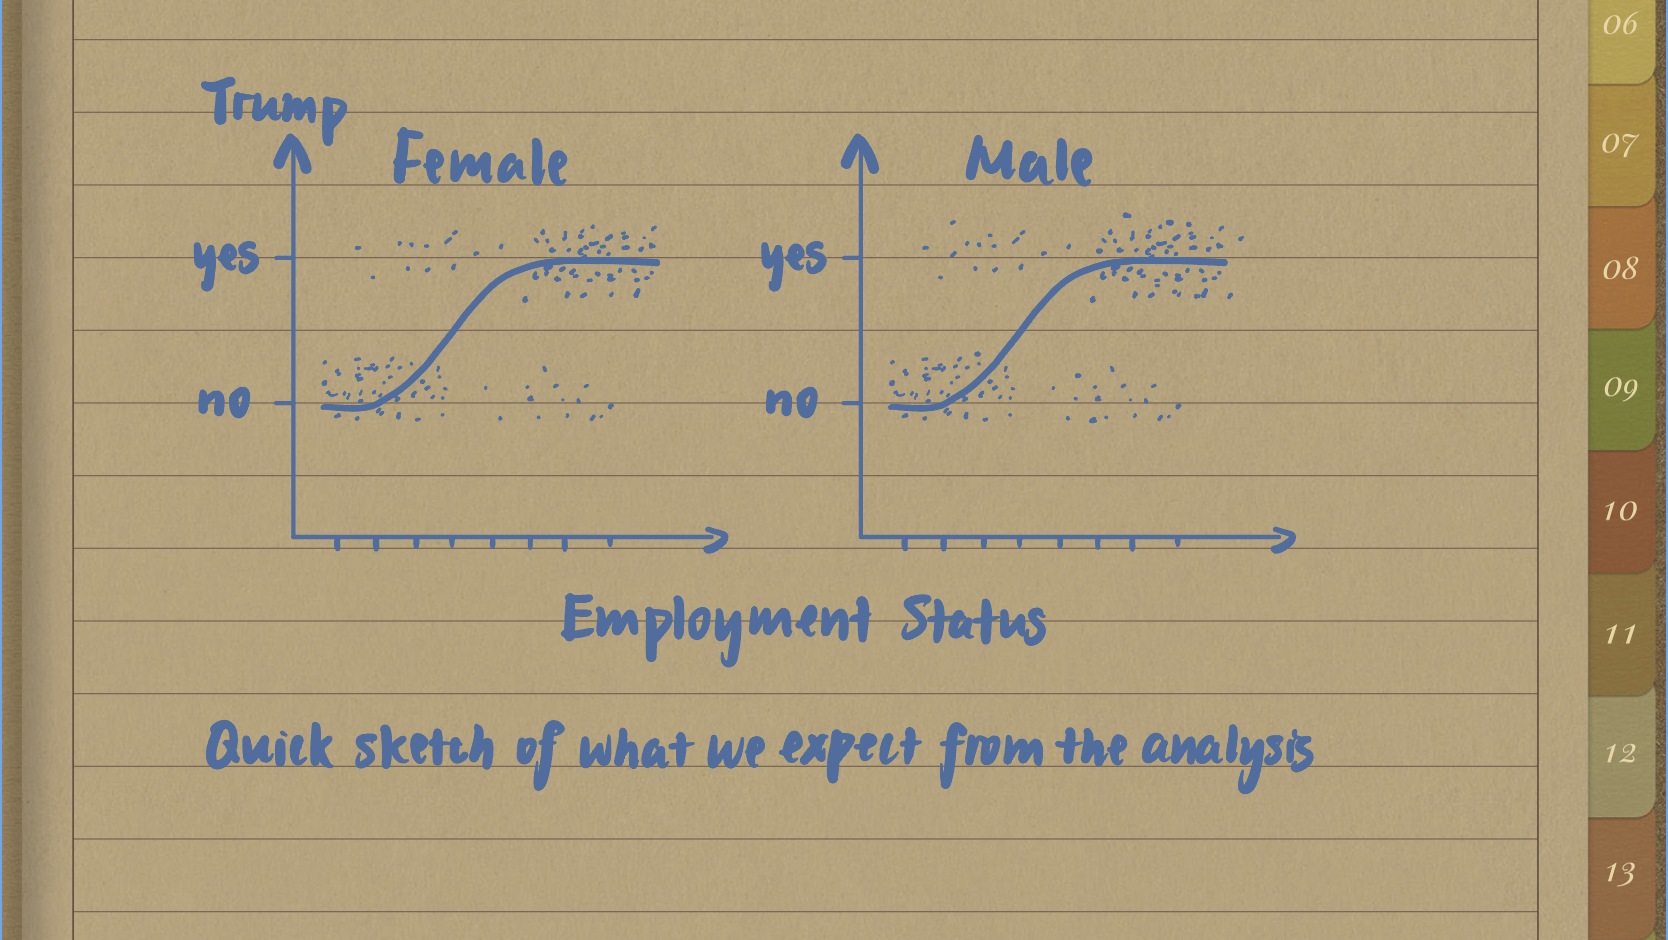 Trump
Female
Male
yes
no
yes
no
Employment Status
Quick sketch of what we expect from the analysis
06
07
08
09
10
11
12
13